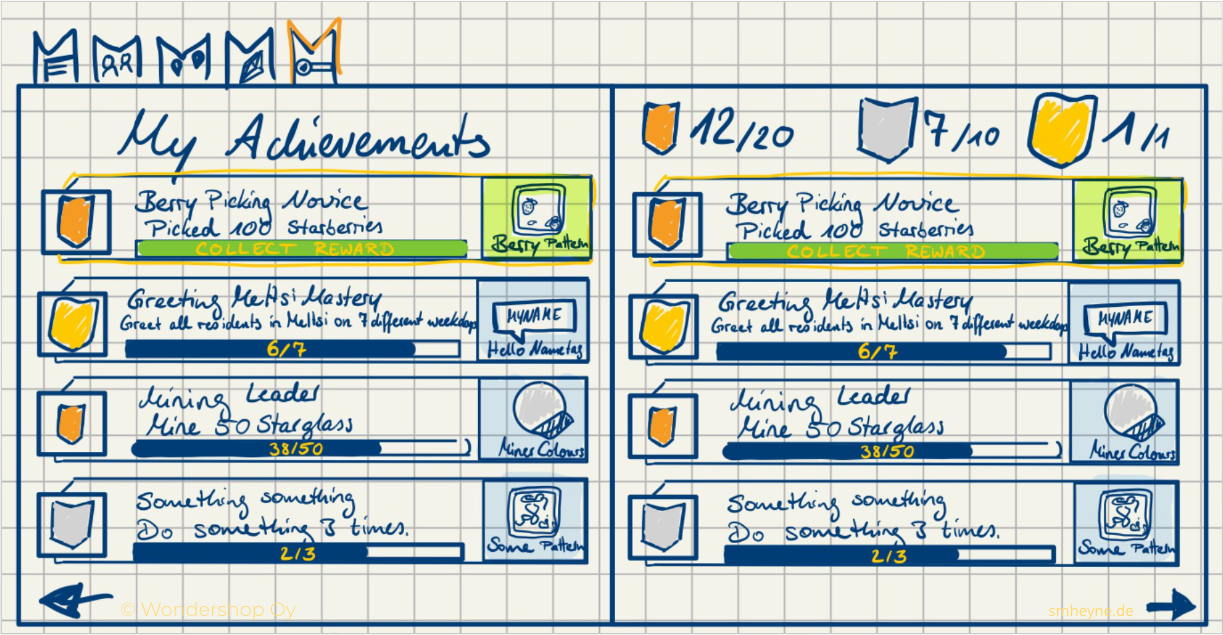 My Achievements
Berry Picking Novice
Picked 100 Starberries
COLLECT REWARD
Berry Pattern
Greeting Meltsi Mastery
Greet all residents in Meltsi on 7 different weekdays
6/7
MYNAME
Hello Nametag
Mining Leader
Mine 50 Starglass
38/50
Miner Colours
Something something
Do something 3 times.
2/3
Some Pattern
© Wondershop Oy
12/20
7/10
1/1
Berry Picking Novice
Picked 100 Starberries
COLLECT REWARD
Berry Pattern
Greeting Meltsi Mastery
Greet all residents in Meltsi on 7 different weekdays
6/7
MYNAME
Hello Nametag
Mining Leader
Mine 50 Starglass
38/50
Miner Colours
Something something
Do something 3 times.
2/3
Some Pattern
smheyno.de